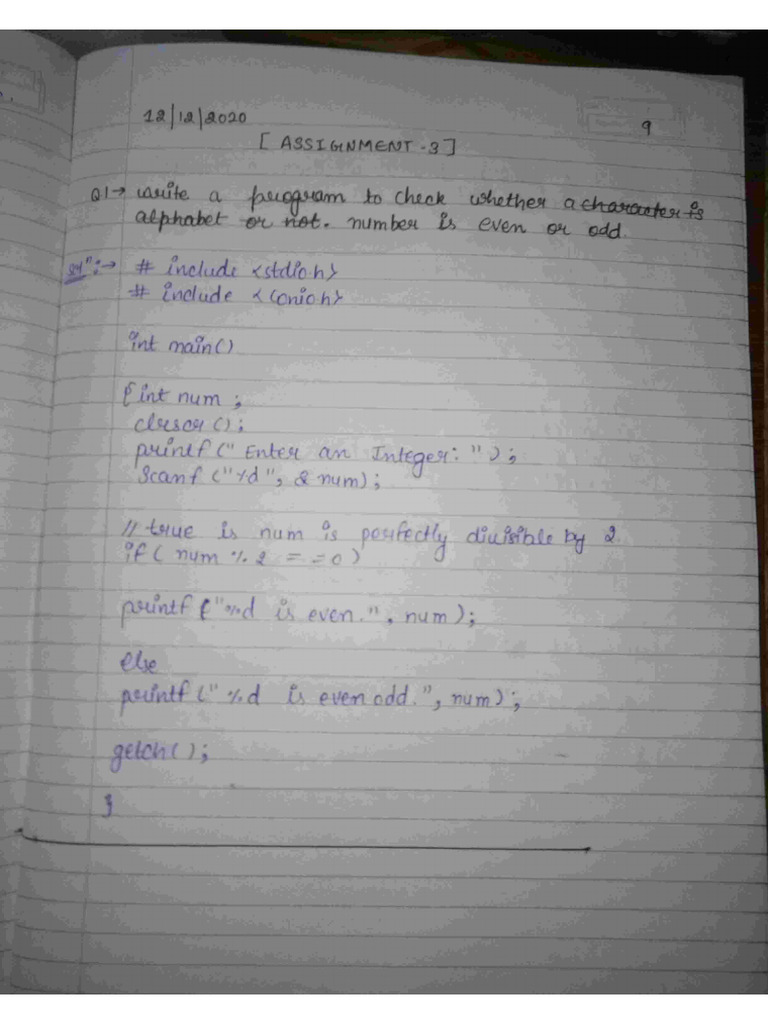 12/12/2020
9
[ ASSIGNMENT - 3 ]
Q1→ write a program to check whether a character is
alphabet or not. number is even or odd.
Solⁿ:→ # include <stdio.h>
# include <conio.h>
int main()
{ int num ;
clrscr ();
printf (" Enter an Integer: " );
Scanf ("%d", & num);
// true is num is perfectly divisible by 2.
if ( num % 2 = = 0 )
printf ("%d is even.", num );
else
printf (" %d is even odd.", num) ;
getch();
}